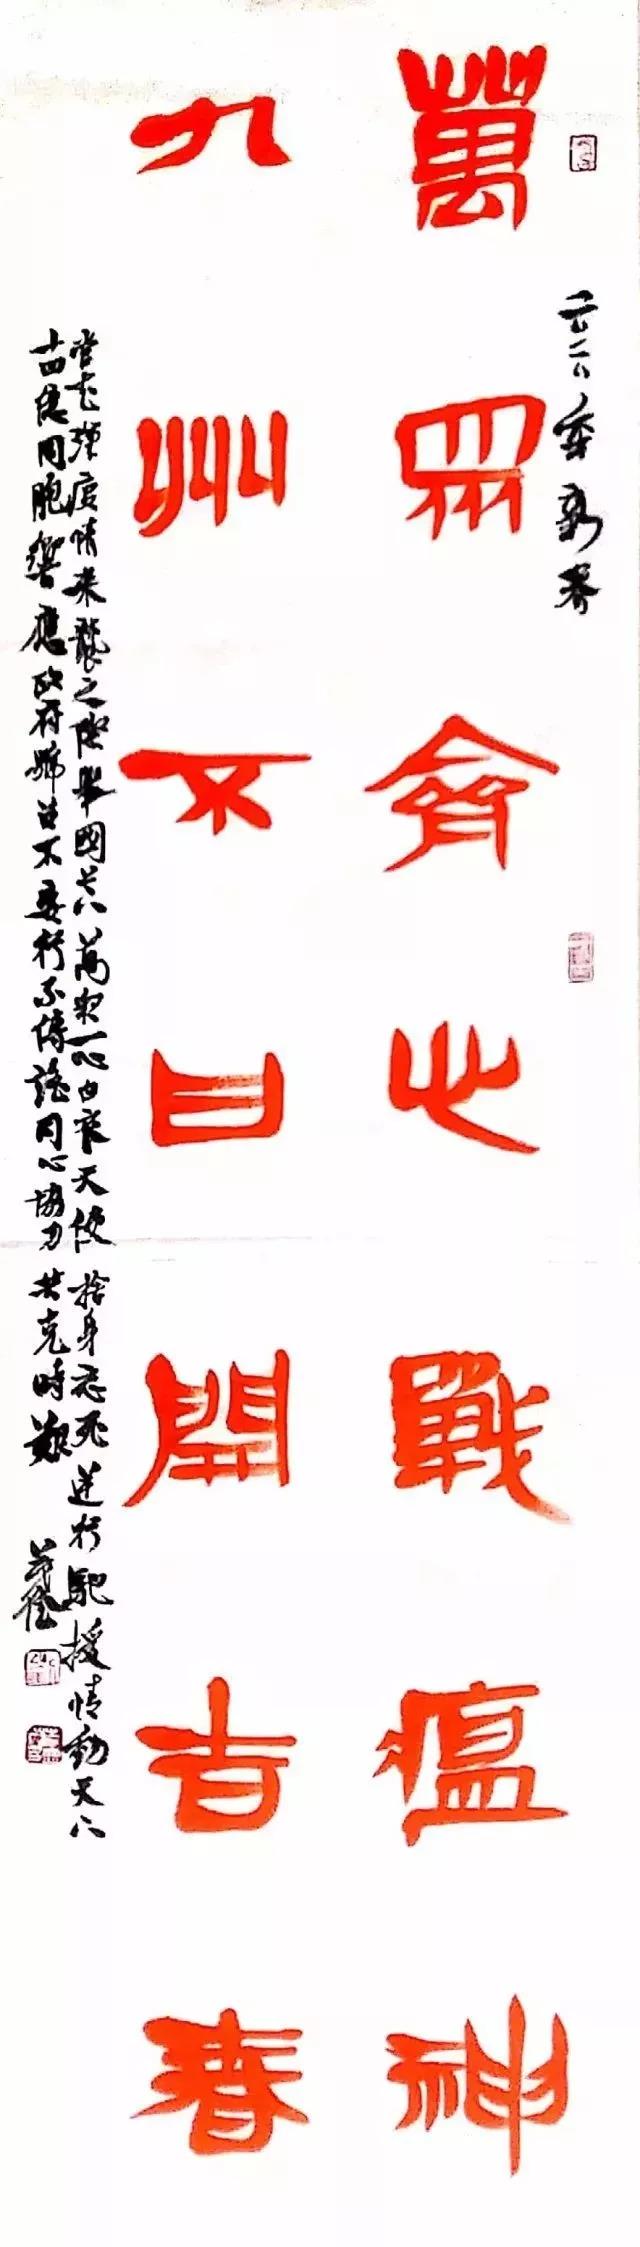 二〇二〇年新春
萬眾齊心戰瘟神
九州不日開吉春
當此强疫情来襲之際舉國上下萬衆一心白衣天使捨身忘死逆行馳援情動天下
十四億同胞響應政府號召不妄行不傳謠同心協力共克時艱